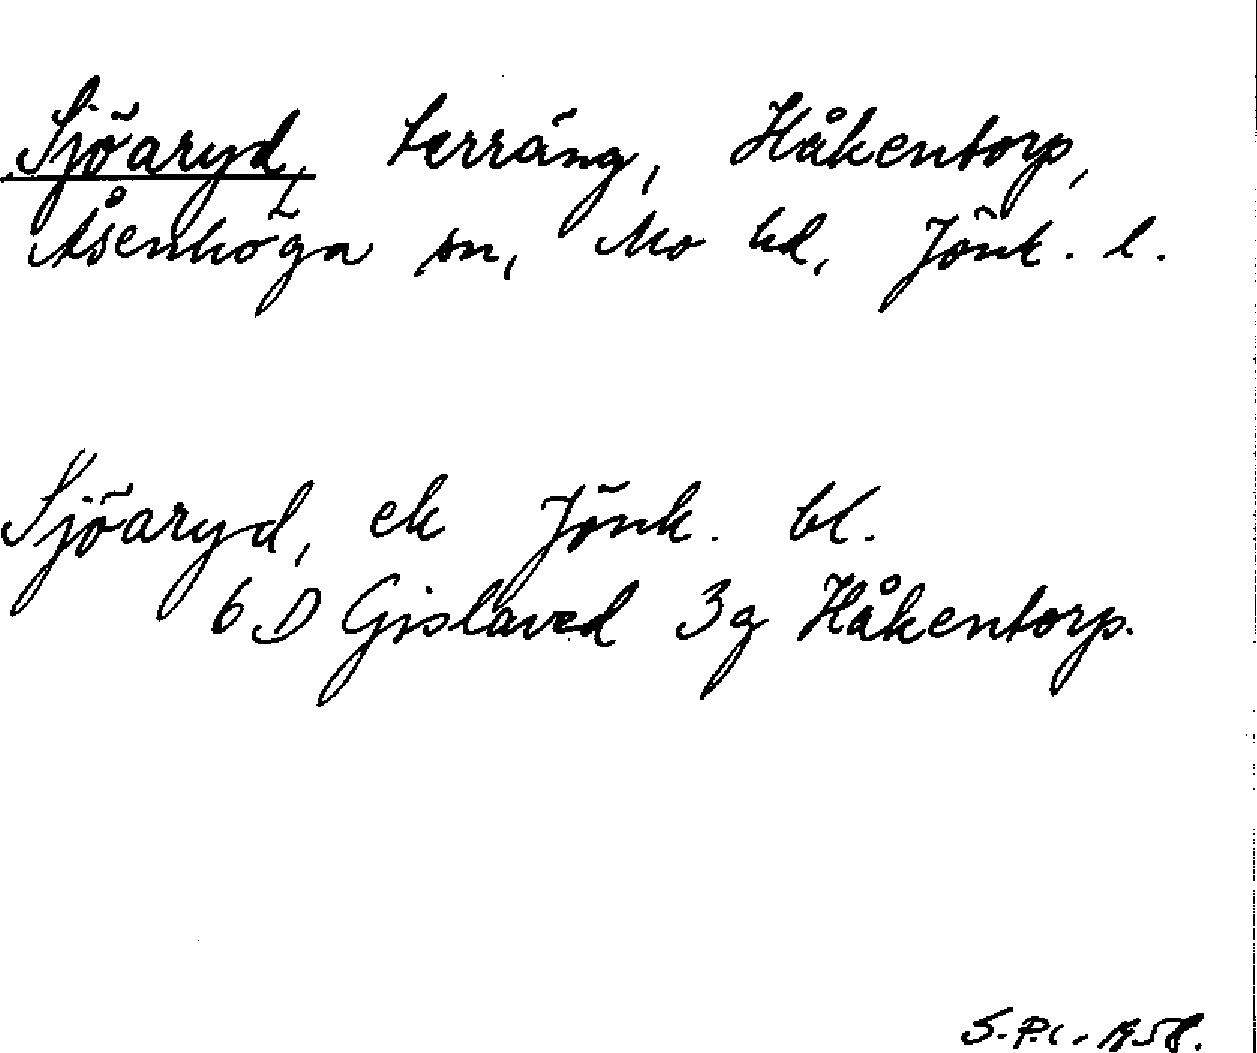 Sjöaryd, terräng, Håkentorp,
Åsenhöga sn, Mo hd, Jönk. l.
Sjöaryd, ek Jönk. bl.
6 D Gislaved 3g Håkentorp.
1958.